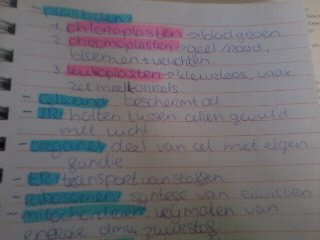 - plastiden
1. chloroplasten -> bladgroen
chromoplasten -> geel/rood,
bloemen + vruchten
3. leukoplasten -> kleurloos, vaak
zetmeelkorrels
- celwand beschermt cel
- IR: holten tussen cellen gevuld
met lucht
- organel deel van cel met eigen
functie
- ER transport van stoffen
- ribosomen syntese van eiwitten
- mitochondrien vrijmaken van
energie dmv. zuurstof